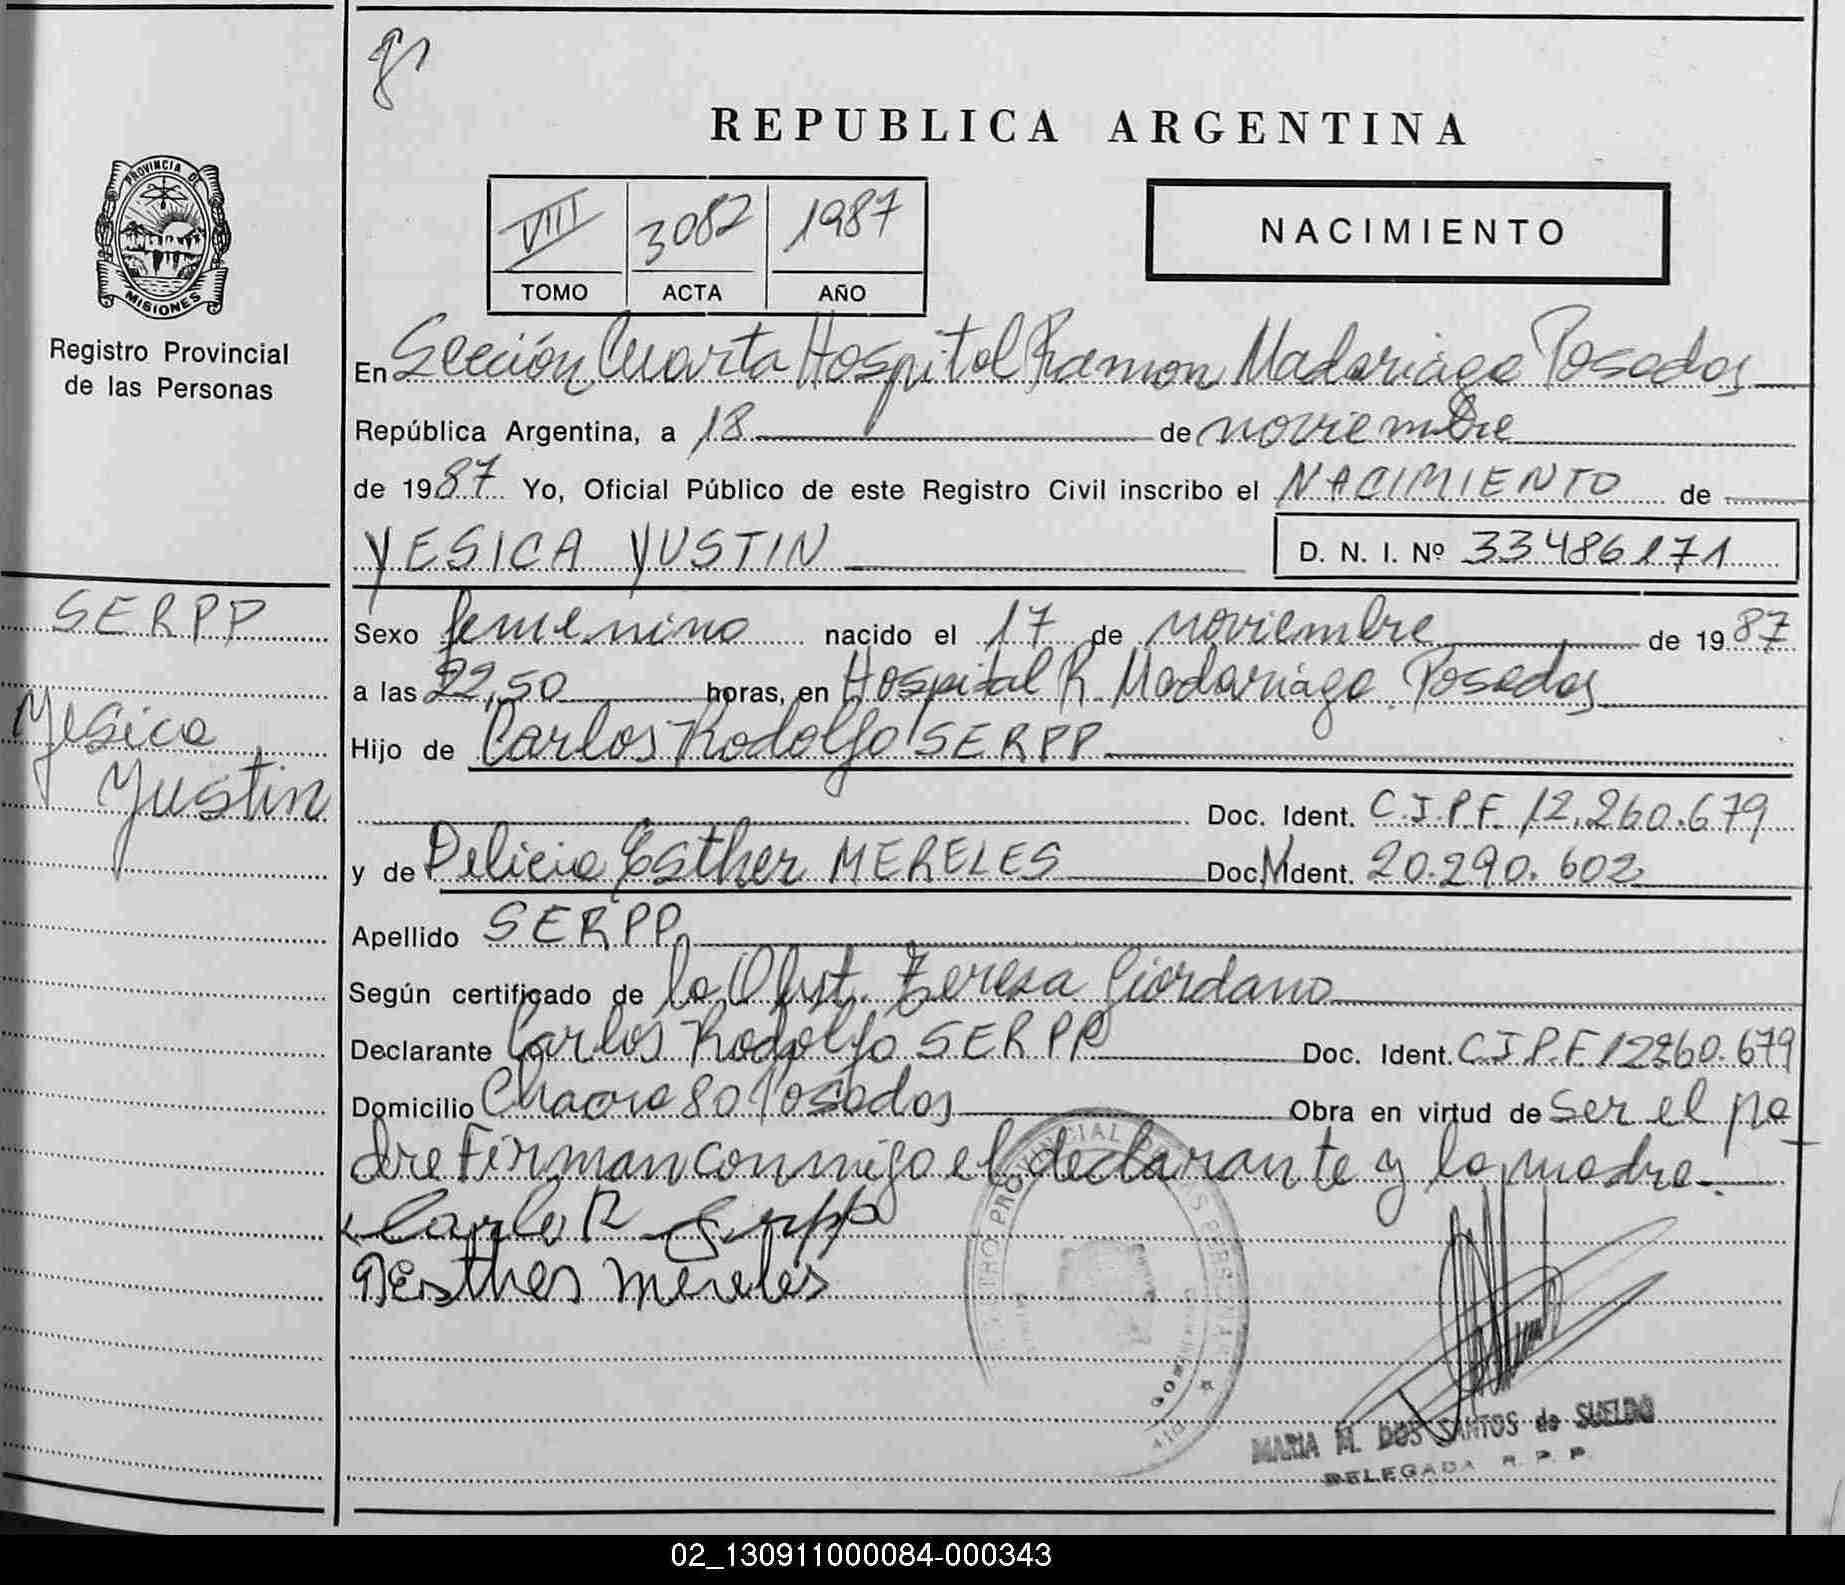 REPUBLICA ARGENTINA
PROVINCIA DE
MISIONES
Registro Provincial
de las Personas
VIII 3082 1987
TOMO ACTA AÑO
NACIMIENTO
En Sección Cuarta Hospital Ramon Madariaga Posadas
República Argentina, a 18 de noviembre
de 1987 Yo, Oficial Público de este Registro Civil inscribo el NACIMIENTO de
YESICA YUSTIN
D. N. I. Nº 33486171
SERPP
Yesica
Yustin
Sexo femenino nacido el 17 de noviembre de 1987
a las 22,50 horas, en Hospital R. Madariaga Posadas
Hijo de Carlos Rodolfo SERPP
Doc. Ident. C.I.P.F. 12.260.679
y de Delicia Esther MERELES Doc.N.Ident. 20.290.602
Apellido SERPP
Según certificado de la Obst. Teresa Giordano
Declarante Carlos Rodolfo SERPP Doc. Ident. C.I.P.F 12260.679
Domicilio Chacra 80 Posadas Obra en virtud de ser el pa
dre Firman conmigo el declarante y la madre.
Carlo R Serpp
D Esther Mereles
MARIA M. DOS SANTOS de SUELDO
DELEGADA R. P. P.
02_130911000084-000343